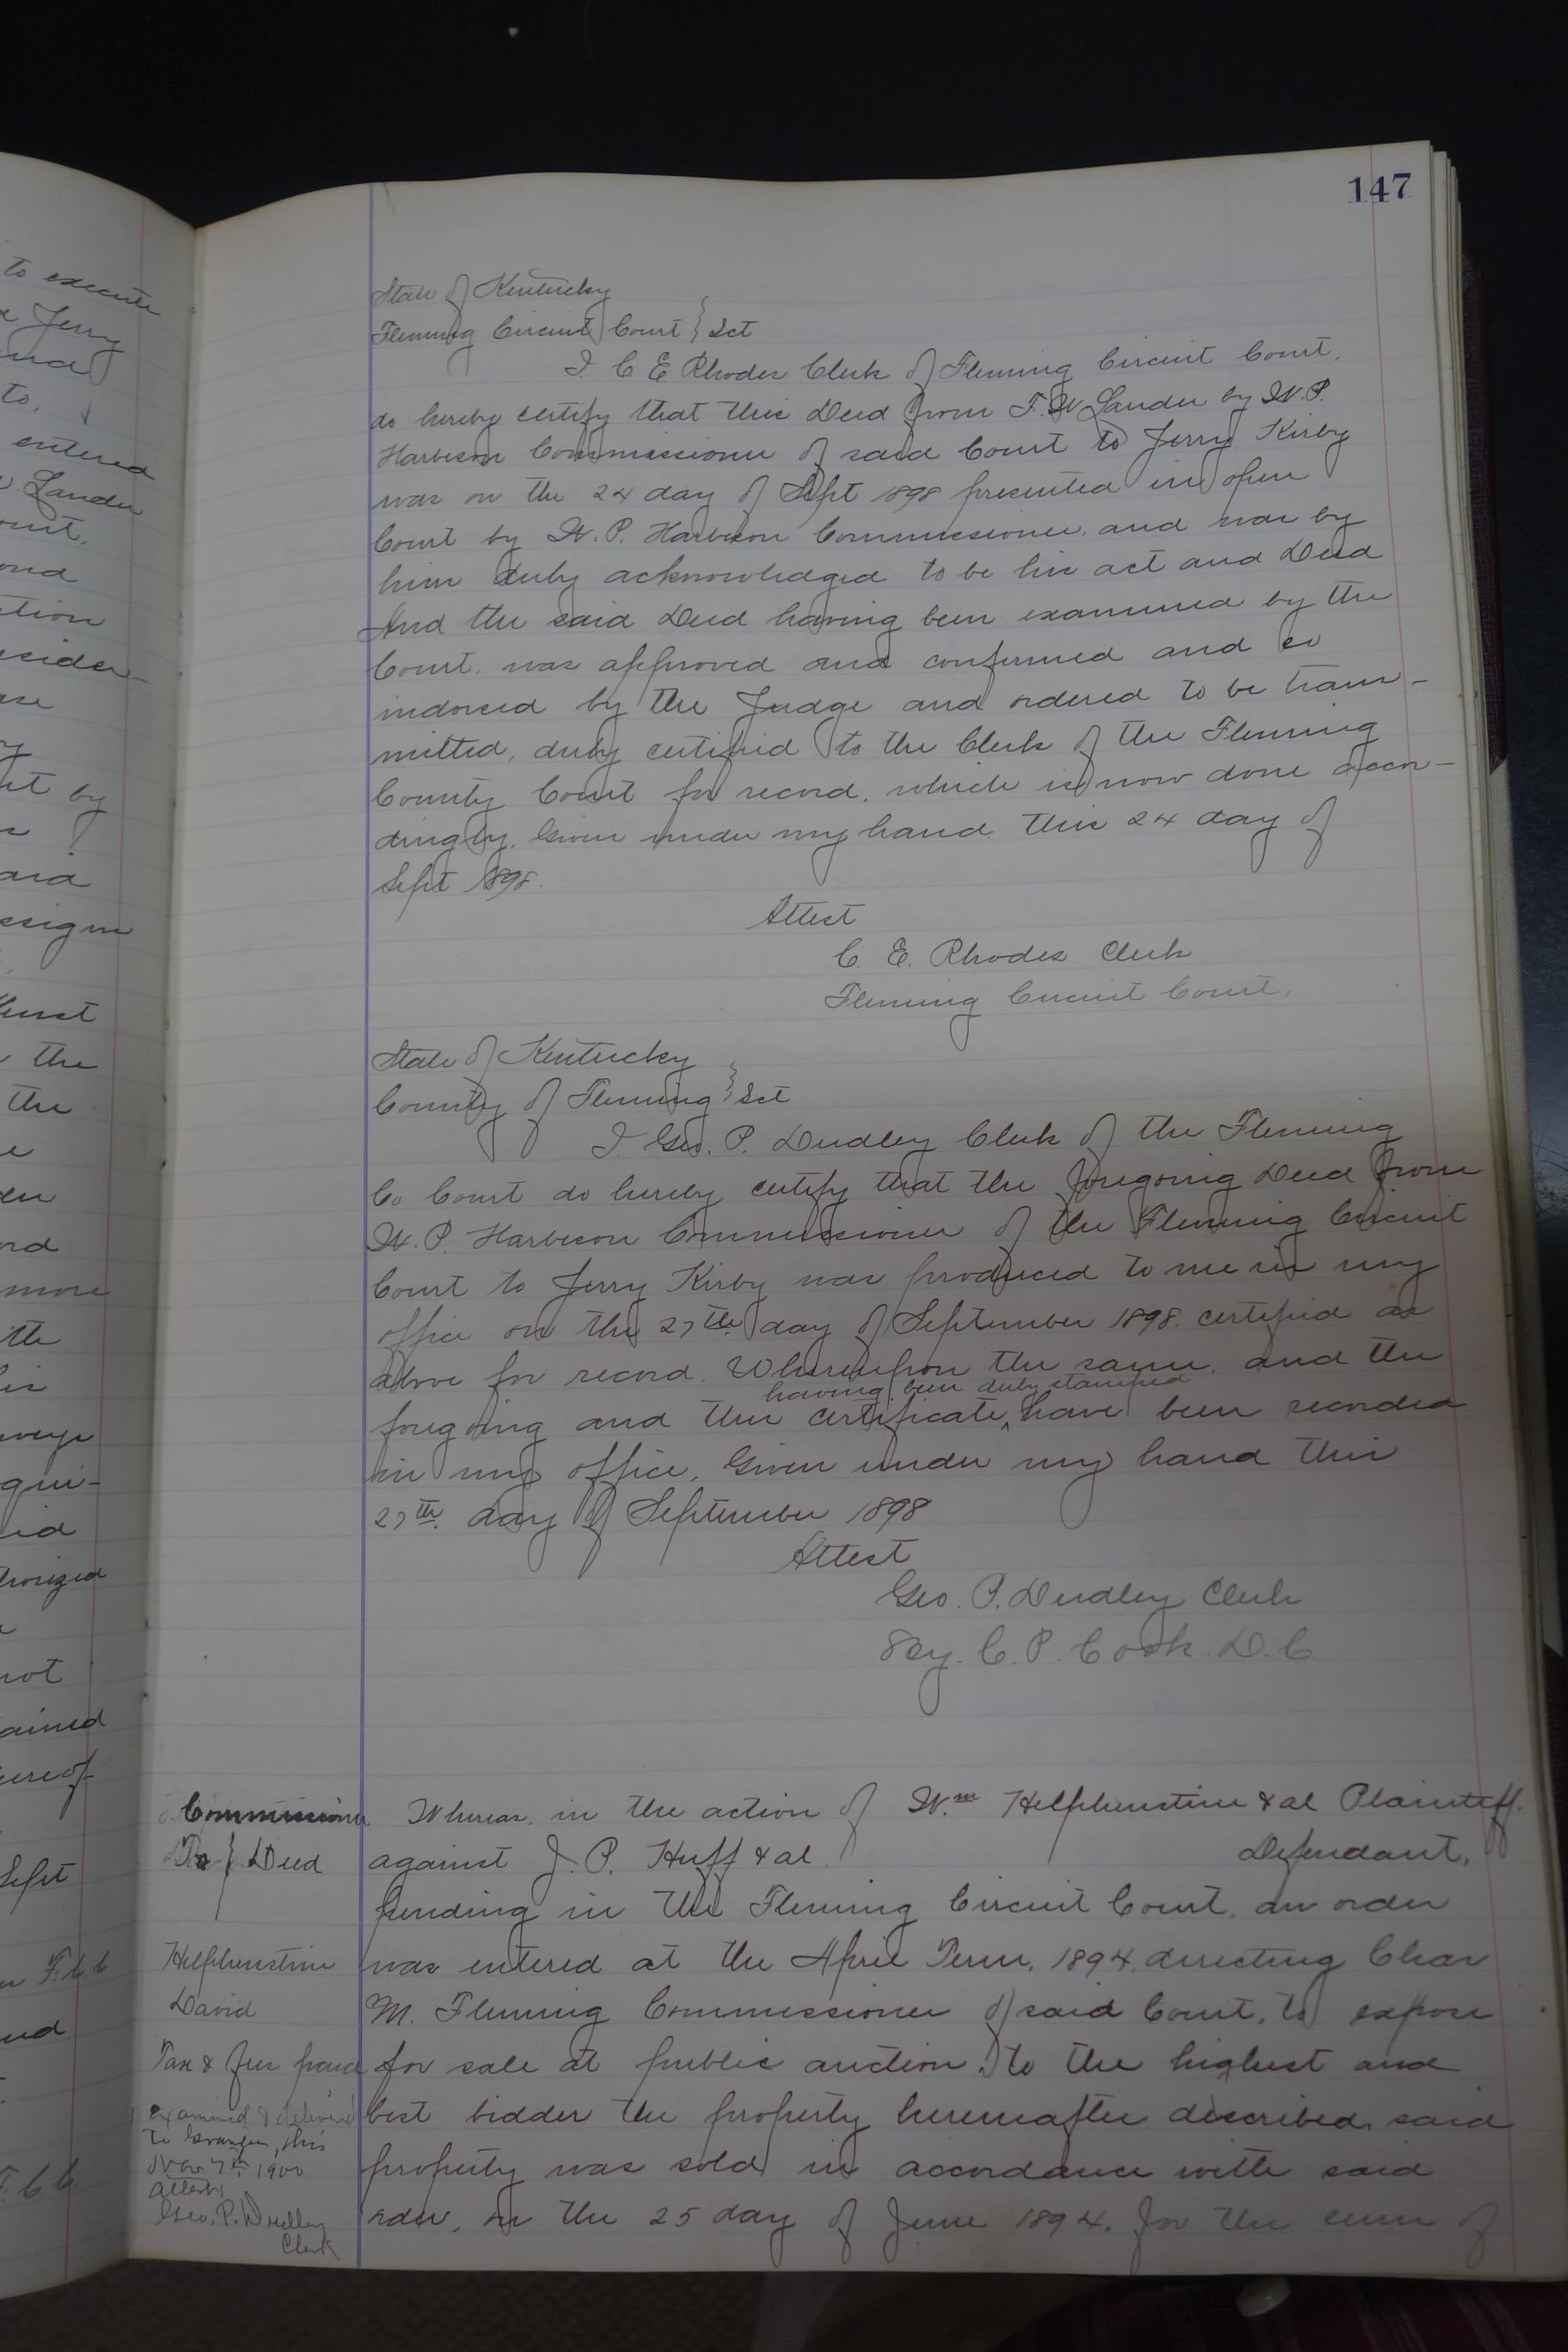 147
State of Kentucky
Fleming Circuit Court } Sct
I C E Rhodes Clerk of Fleming Circuit Court,
do hereby certify that this Deed from T. W Lander by W. P.
Harbeson Commissioner of said Court to Jerry Kirby
was on the 24 day of Sept 1898 presented in open
Court by W. P. Harbeson Commissioner, and was by
him duly acknowledged to be his act and Deed
And the said Deed having been examined by the
Court, was approved and confirmed and so
indorsed by the Judge and ordered to be trans-
mitted, duly certified to the Clerk of the Fleming
County Court for record, which is now done accor-
dingly. Given under my hand this 24 day of
Sept 1898.
Attest
C. E. Rhodes Clerk
Fleming Circuit Court.
State of Kentucky
County of Fleming } Sct
I Geo. P. Dudley Clerk of the Fleming
Co Court do hereby certify that the foregoing Deed from
W. P. Harbeson Commissioner of the Fleming Circuit
Court to Jerry Kirby was produced to me in my
office on the 27th day of September 1898. certified as
above for record. Whereupon the same, and the
having been duly stamped
foregoing and this certificate ^ have been recorded
in my office. Given under my hand this
27th. day of September 1898
Attest
Geo. P. Dudley Clerk
By. C. P. Cook. D. C.
Commissioner
To } Deed
Helphenstine
David
Tax & fees paid
examined & delivered
to Grantee, this
Nov 7th 1900
Attest:
Geo. P. Dudley
Clerk
Whereas, in the action of Wm Helphenstine & al Plaintiff.
against J. P. Huff & al. Defendant,
pending in the Fleming Circuit Court, an order
was entered at the April Term, 1894, directing Chas
M. Fleming Commissioner of said Court, to expose
for sale at public auction, to the highest and
best bidder the property hereinafter described, said
property was sold in accordance with said
order, on the 25 day of June 1894. for the sum of